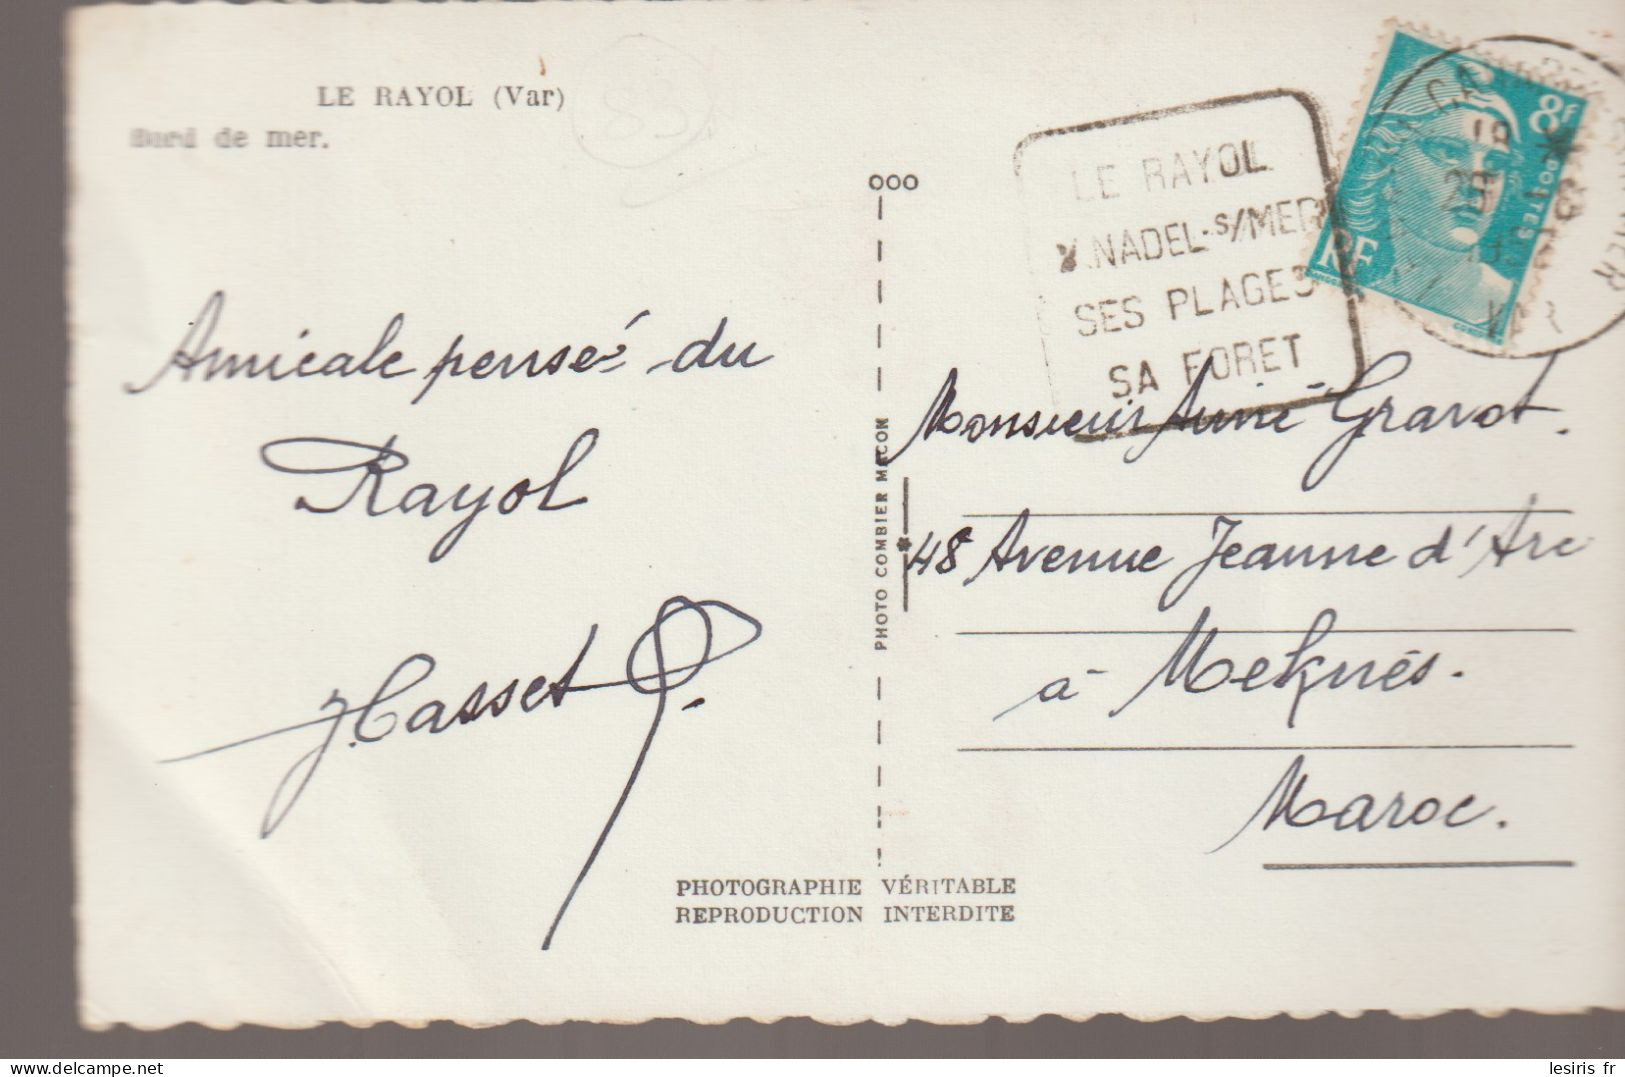 LE RAYOL (Var)
Bord de mer.
83
Amicale pensé du
Rayol
J. Casset
PHOTO COMBIER MACON
PHOTOGRAPHIE VÉRITABLE
REPRODUCTION INTERDITE
LE RAYOL
CANADEL-s/MER
SES PLAGES
SA FORET
8F
POSTES
RF
VAR
Monsieur Aimé Gravot.
48 Avenue Jeanne d'Arc
à Meknés.
Maroc.
lesiris fr